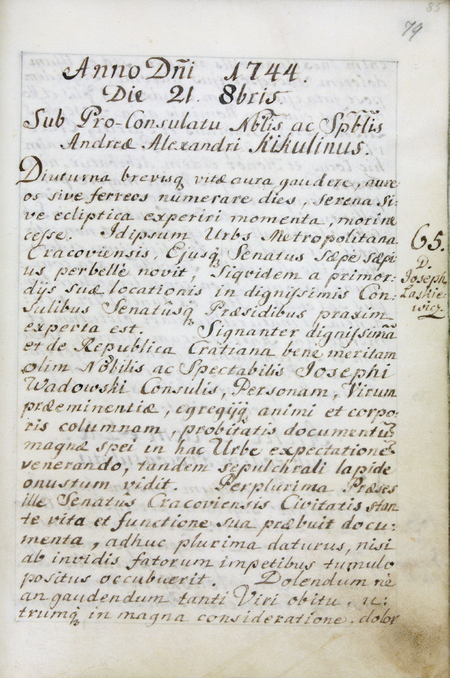 85
79
Anno Dñi 1744.
Die 21. 8bris
Sub Pro-Consulatu Nblis ac Spblis
Andreæ Alexandri Kikulinus.
Diuturna brevisq vitæ aura gaudere, aure
os sive ferreos numerare dies, serena si
ve ecliptica experiri momenta, morine
cesse. Idipsum Urbs Metropolitana
Cracoviensis, Ejusq Senatus Sæpe sæpi
us perbelle novit, Siqridem a primor:
dijs suæ locationis in dignissimis Con
sulibus Senatusq Præsidibus praxim
experta est. Signanter dignissimã
et de Republica Cratiana bene meritam
olim Nobilis ac Spectabilis Josephi
Wadowski Consulis, Personam, Virum
præeminentiæ, egregijq animi et corpo:
ris columnam, probitatis documentũ,
magnæ spei in hac Urbe expectatione
venerando, tandem sepulchrali lapide
onustum vidit. Perplurima Præses
ille Senatus Cracoviensis Civitatis stan
te vita et functione sua præbuit docu:
menta, adhuc plurima daturus, nisi
ab invidis fatorum impetibus tumulo
positus occubuerit. Dolendum ne
an gaudendum tanti Viri obitu, u:
trumq in magna consideratione. dolor
65.
D.
Joseph
Laskie-
wicz